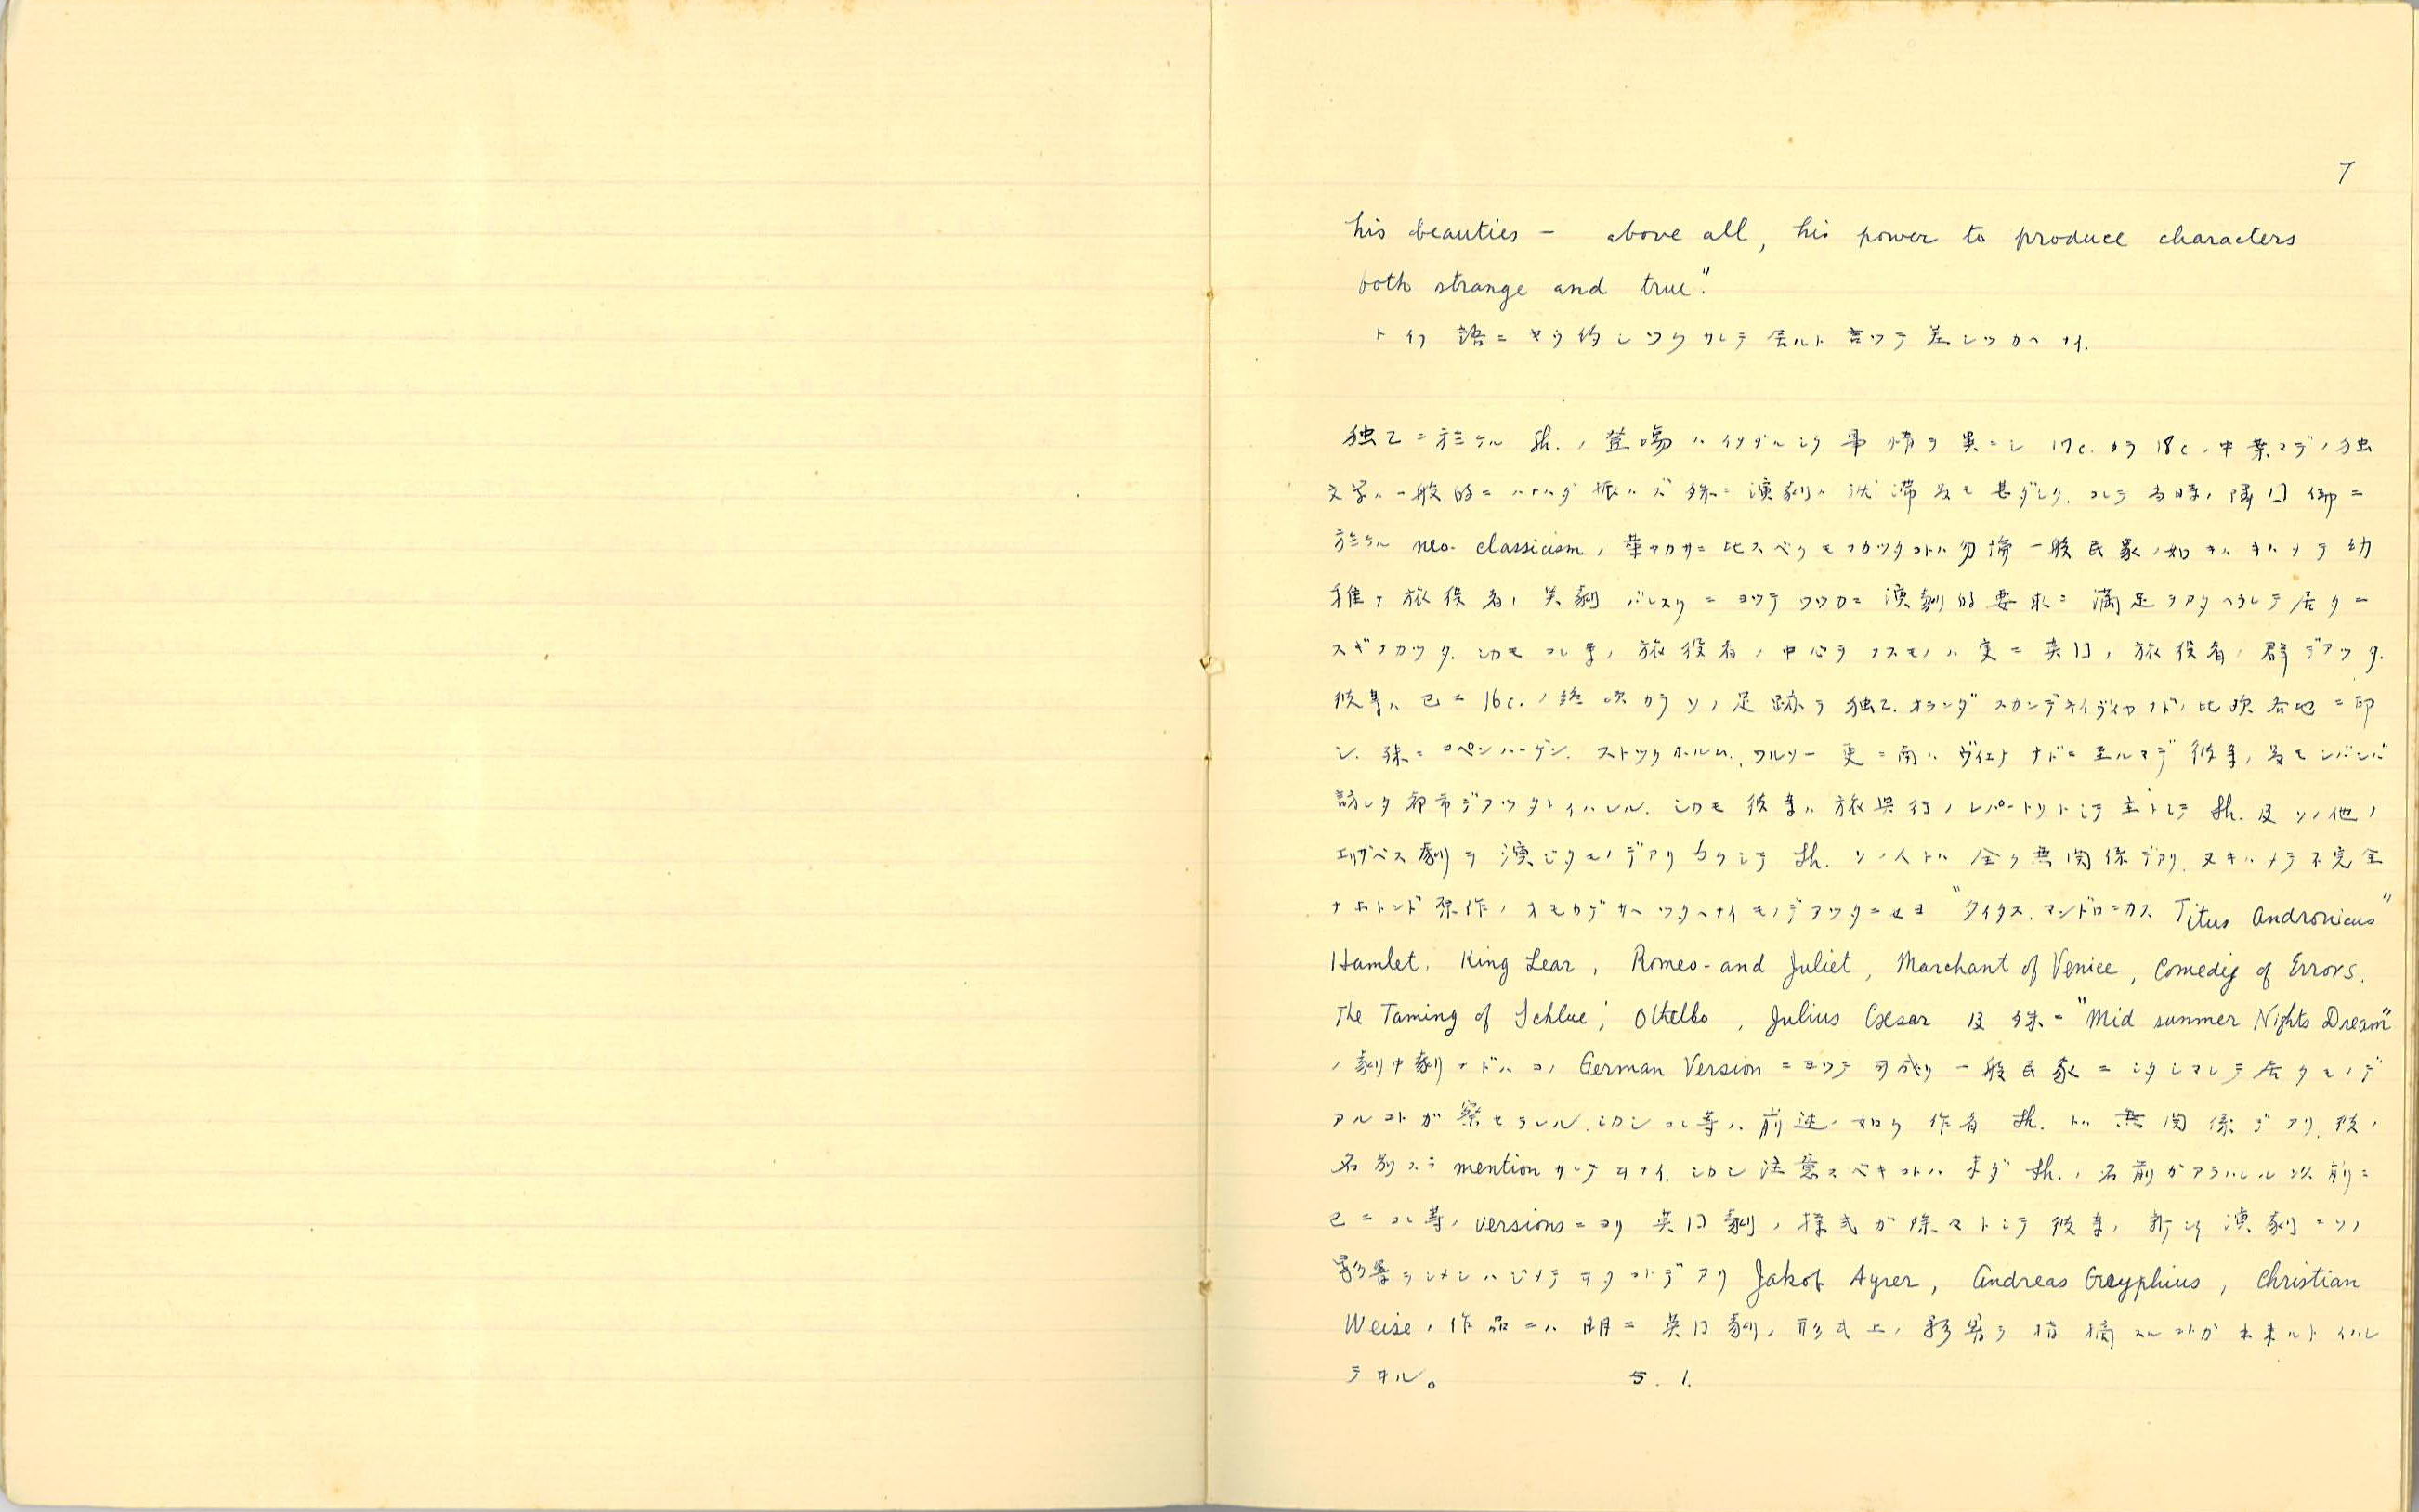 7
his beauties - above all, his power to produce characters
both strange and true."
ト イフ 語ニ ヤウ約シツクサレテ居ルト 言ツテ差シツカヘナイ.
独乙ニ於ケル Sh.ノ登場ハイササカ 事情ヲ異ニシ 17c.カラ 18c.中葉マデノ独
文学ハ一般的ニ ハナハダ振ハズ 殊ニ演劇ハ沈滞 最モ甚ダシク. コレヲ当時ノ隣国 仏ニ
於ケル neo-classicism ノ華ヤカサニ比スベクモナカツタコトハ勿論一般民衆ノ如キハ キハメテ幼
稚ナ旅役者ノ笑劇 バレスクニヨツテ ワヅカニ演劇的要求ニ満足ヲアタヘラレテ居タニ
スギナカツタ. シカモ コレ等ノ旅役者ノ中心ヲナスモノハ実ニ英国ノ旅役者ノ群デアツタ.
彼等ハ已ニ 16c.ノ終頃カラソノ足跡ヲ独乙. オランダ スカンデナイヴィヤナドノ北欧各地ニ印
シ. 殊ニコペンハーゲン. ストックホルム., ワルソー 更ニ南ハヴィエナナドニ至ルマデ 彼等ノ最モシバシバ
訪レタ都市デアツタトイハレル. シカモ彼等ハ旅興行ノレパートリトシテ主トシテ Sh.及ソノ他ノ
エリザベス劇ヲ演ジタモノデアリ カクシテ Sh. ソノ人トハ 全ク無関係デアリ. 又キハメテ不完全
ナホトンド原作ノオモカゲサヘツタヘナイモノデアツタニセヨ "タイタス. アンドロニカス Titus Andronicus"
Hamlet. King Lear, Romeo-and Juliet, Marchant of Venice, Comedy of Errors.
The Taming of Schlue; Othello, Julius Cæsar 及 殊ニ "Mid summer Nights Dream"
ノ劇中劇ナドハコノ German Version ニヨツテ可成リ一般民衆ニシタシマレテ居タモノデ
アルコトガ察セラレル. シカシコレ等ハ前述ノ如ク作者 Sh. トハ無関係デアリ. 彼ノ
名前スラ mention サレテヰナイ. シカシ注意スベキコトハ未ダ Sh.ノ名前ガアラハレル以前ニ
已ニコレ等ノ versions ニヨリ英国劇ノ様式ガ徐々トシテ彼等ノ新シイ演劇ニソノ
影響ヲシメシハジメテヰタコトデアリ Jakob Ayrer, Andreas Greyphius, Christian
Weise ノ作品ニハ明ニ英国劇ノ形式上ノ影響ヲ指摘スルコトガ出来ルトイハレ
テヰル。 5. 1.